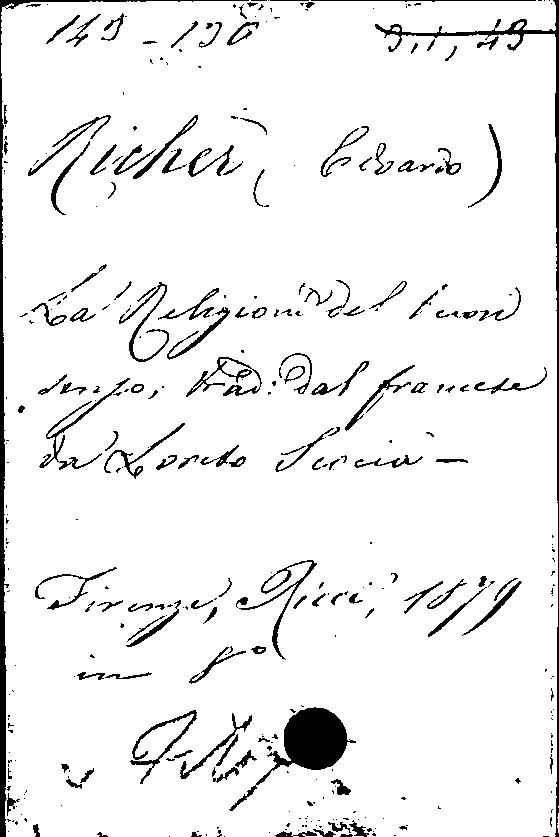 149 - 130 3,1, 43
Richer (Edoardo)
La Religione del buon
senso; trad: dal francese
da Loreto Scocia —
Firenze, Ricci, 1879
in 8º